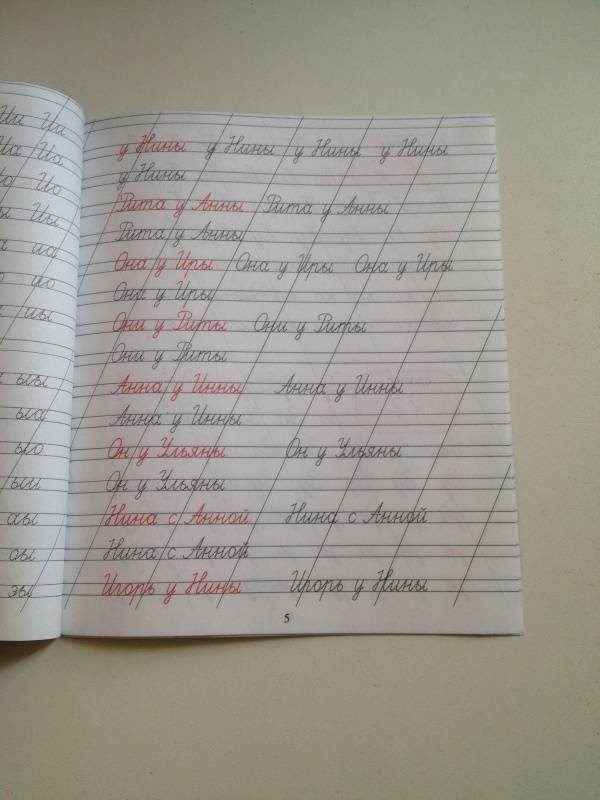 Ии Ии
Иа Иа
Ио Ио
Иы
иа
ио
иы
ыы
ыа
ыо
ыи
ахы
сы
зы
у Нины у Нины у Нины у Нины
у Нины
Рита у Анны Рита у Анны
Рита у Анны
Она у Иры Она у Иры Она у Иры
Она у Иры
Они у Риты Они у Риты
Они у Риты
Анна у Инны Анна у Инны
Анна у Инны
Он у Ульяны Он у Ульяны
Он у Ульяны
Нина с Анной Нина с Анной
Нина с Анной
Игорь у Нины Игорь у Нины
5